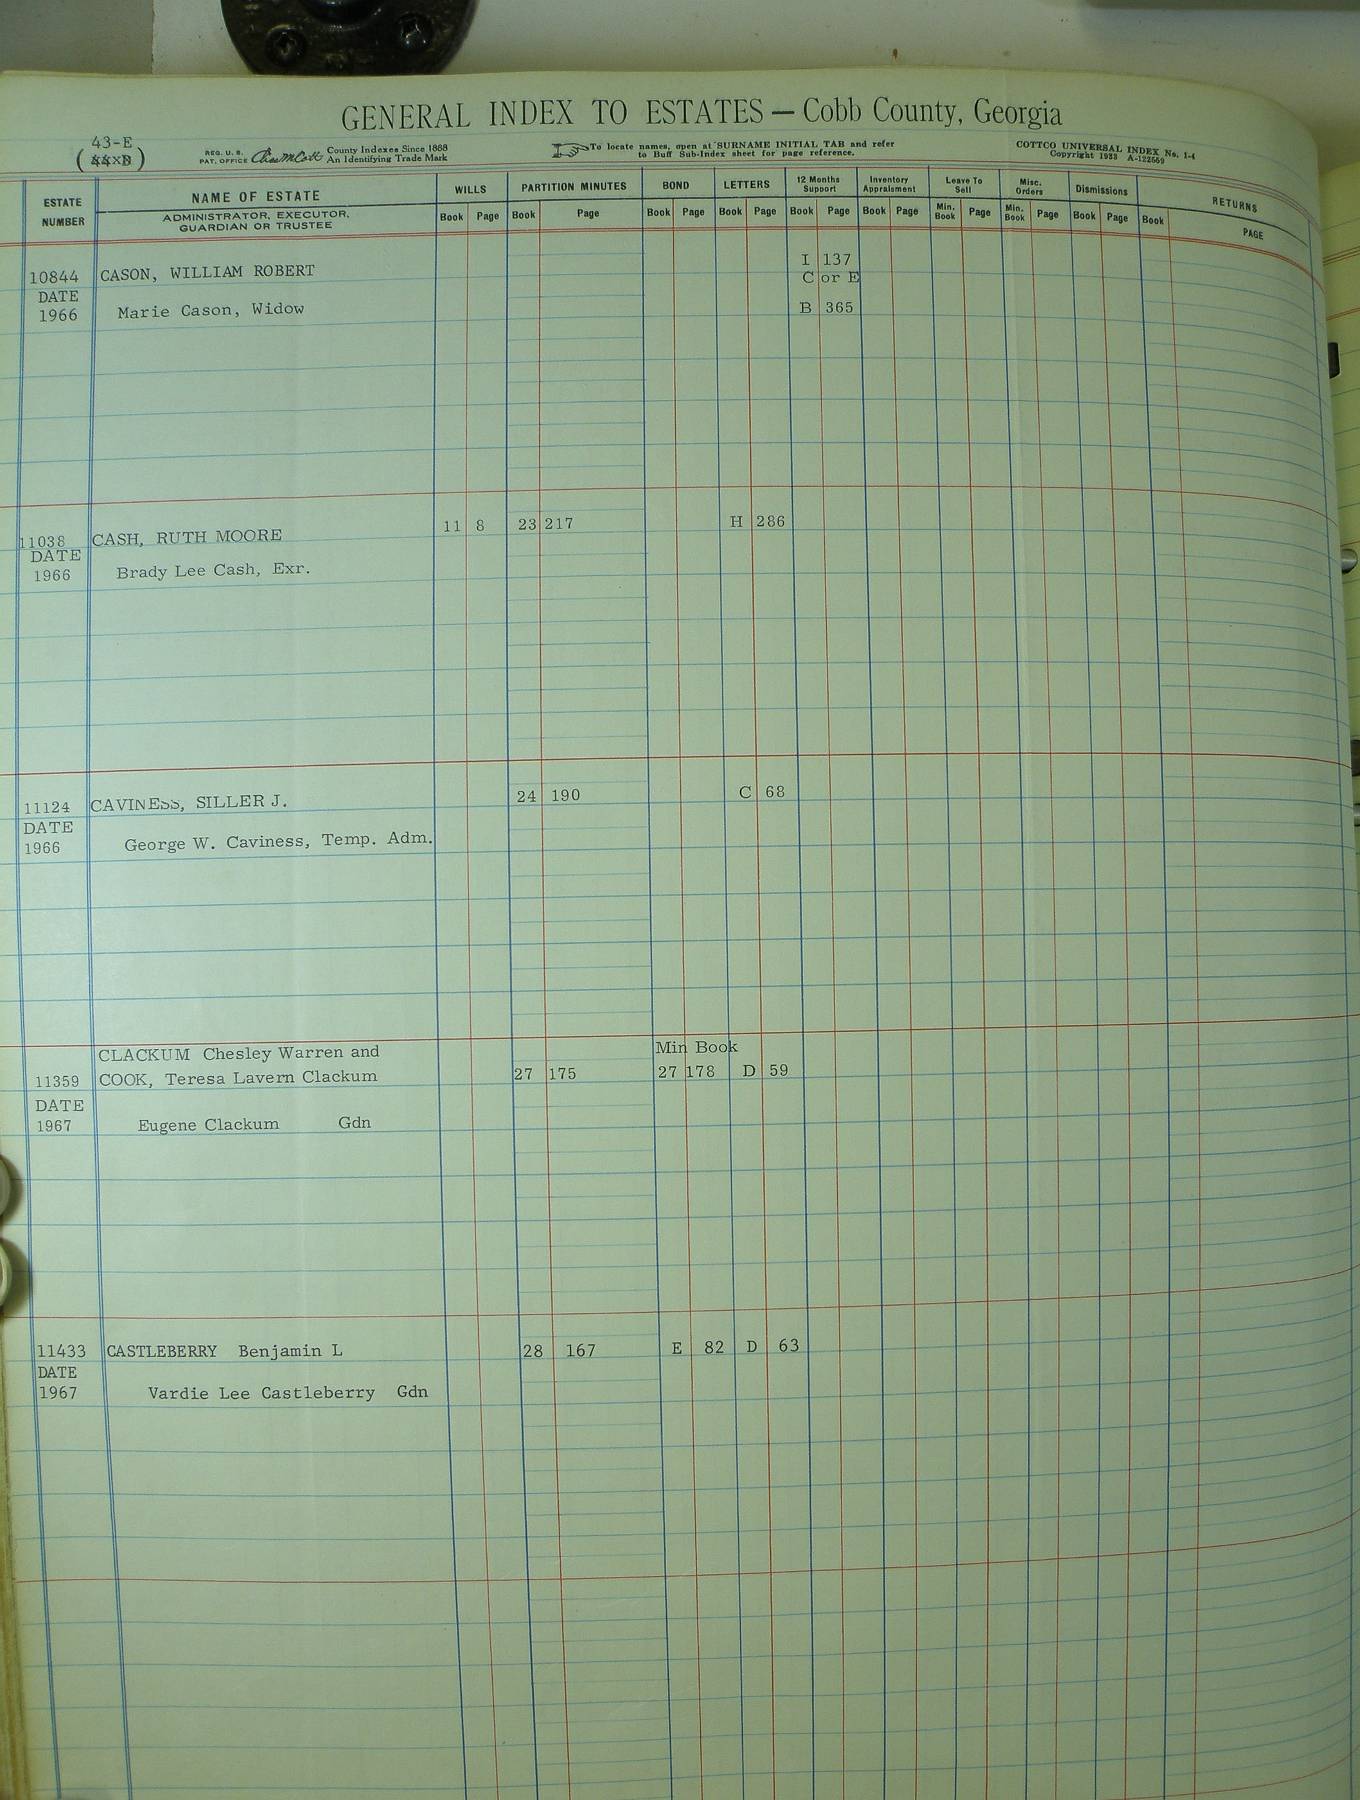 GENERAL INDEX TO ESTATES — Cobb County, Georgia
43-E
REG. U. S. PAT. OFFICE County Indexes Since 1888 An Identifying Trade Mark
To locate names, open at SURNAME INITIAL TAB and refer to Buff Sub-Index sheet for page reference.
COTTCO UNIVERSAL INDEX No. 1-4
Copyright 1933 A-122569
ESTATE NUMBER
NAME OF ESTATE
ADMINISTRATOR, EXECUTOR, GUARDIAN OR TRUSTEE
WILLS Book Page
PARTITION MINUTES Book Page
BOND Book Page
LETTERS Book Page
12 Months Support Book Page
Inventory Appraisment Book Page
Leave To Sell Min. Book Page
Misc. Orders Min. Book Page
Dismissions Book Page
RETURNS Book PAGE
I 137
10844 CASON, WILLIAM ROBERT C or E
DATE
1966 Marie Cason, Widow B 365
11 8 23 217 H 286
11038 CASH, RUTH MOORE
DATE
1966 Brady Lee Cash, Exr.
11124 CAVINESS, SILLER J. 24 190 C 68
DATE
1966 George W. Caviness, Temp. Adm.
CLACKUM Chesley Warren and Min Book
11359 COOK, Teresa Lavern Clackum 27 175 27 178 D 59
DATE
1967 Eugene Clackum Gdn
11433 CASTLEBERRY Benjamin L 28 167 E 82 D 63
DATE
1967 Vardie Lee Castleberry Gdn